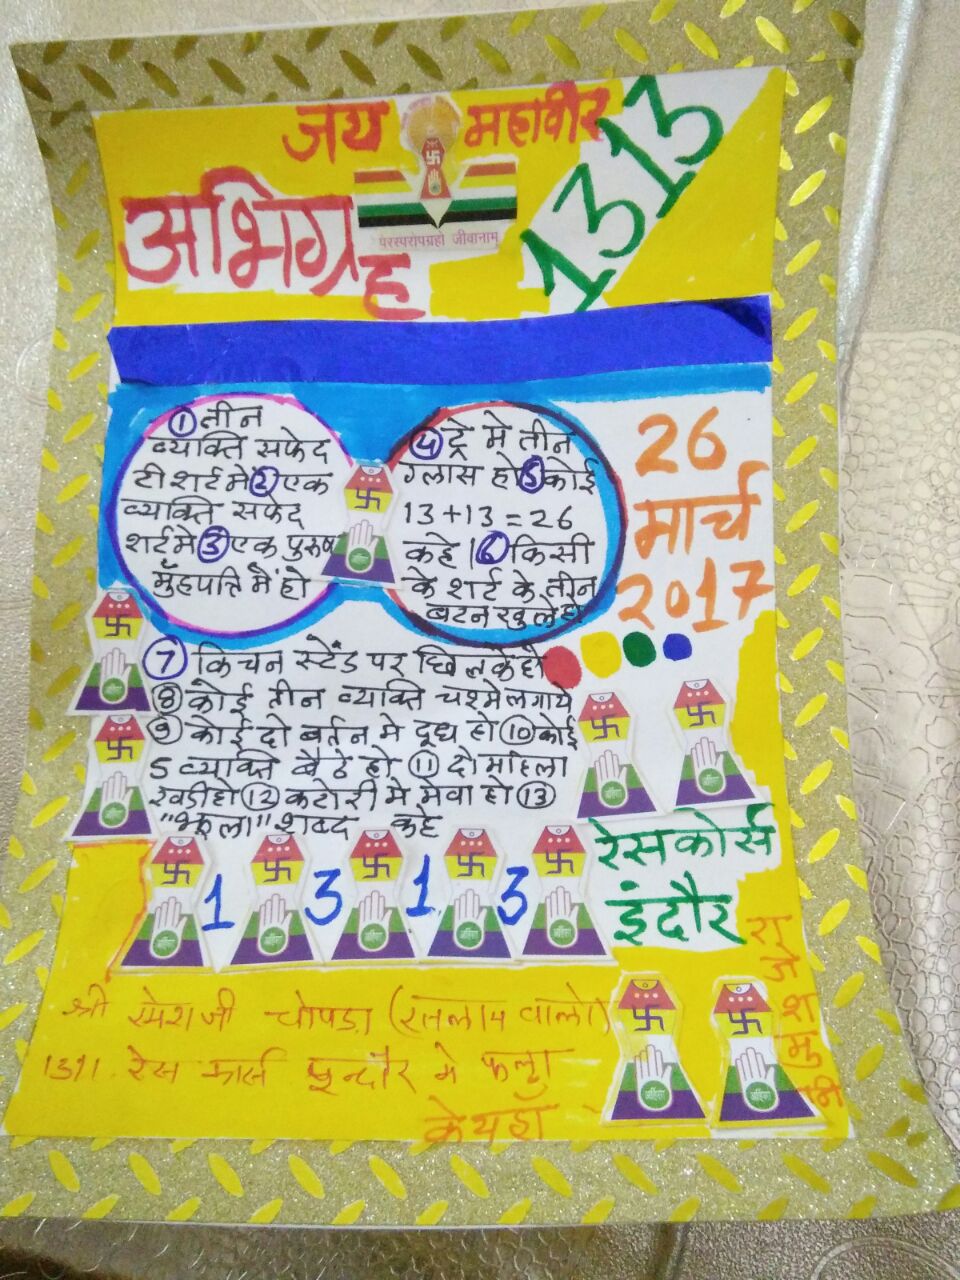 जय महावीर
अभिग्रह
1313
परस्परोपग्रहो जीवानाम्
① तीन
व्यक्ति सफेद
टी शर्ट मे ② एक
व्यक्ति सफेद
शर्ट मे ③ एक पुरुष
मुँहपत्ति में हो
④ ट्रे मे तीन
ग्लास हो ⑤ कोई
13+13=26
कहे। ⑥ किसी
के शर्ट के तीन
बटन खुले हो
26
मार्च
2017
⑦ किचन स्टेंड पर छिलके हो
⑧ कोई तीन व्यक्ति चश्मे लगाये
⑨ कोई दो बर्तन मे दूध हो ⑩ कोई
5 व्यक्ति बैठे हो ⑪ दो महिला
खडी हो ⑫ कटोरी मे मेवा हो ⑬
"झूला" शब्द कहे
1 3 1 3
रेसकोर्स
इंदौर
श्री रमेशजी चोपडा (रतलाम वाले)
13/1. रेस कोर्स इन्दौर मे फला
के यहाँ
राजेश मुनि